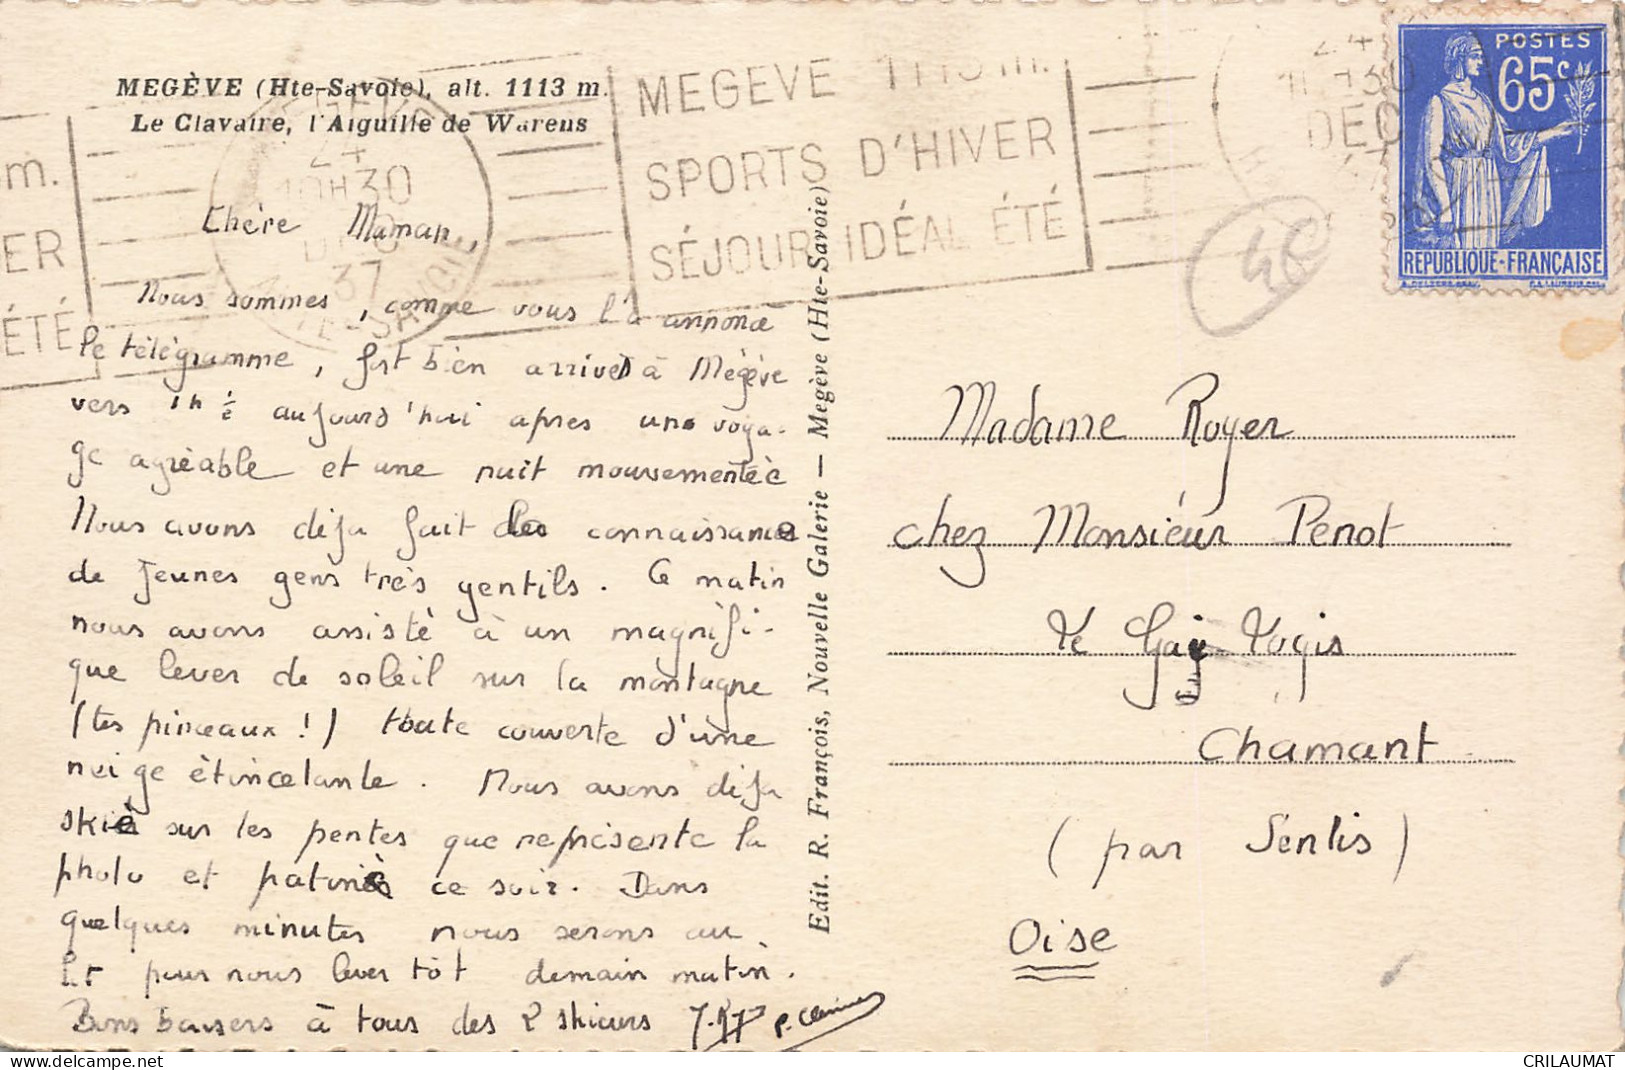 MEGÈVE (Hte-Savoie), alt. 1113 m.
Le Clavaire, l'Aiguille de Warens
m.
ER
ÉTÉ
24
10H30
DEC
37
HTE-SAVOIE
MEGEVE 1113 m.
SPORTS D'HIVER
SÉJOUR IDÉAL ÉTÉ
24
DEC
POSTES
65c
REPUBLIQUE-FRANÇAISE
46
Chère Maman,
Nous sommes, comme vous l'a annoncé
le télégramme, fort bien arrivés à Megève
vers 1h ½ aujourd'hui apres une voya-
ge agréable et une nuit mouvementée
Nous avons déja fait des connaissances
de jeunes gens très gentils. Ce matin
nous avons assisté à un magnifi-
que lever de soleil sur la montagne
(tes pinceaux !) toute couverte d'une
neige étincelante. Nous avons déja
skié sur les pentes que représente la
photo et patiné ce soir. Dans
quelques minutes nous serons au
lit pour nous lever tôt demain matin.
Bons baisers à tous des 2 skieurs
Edit. R. François, Nouvelle Galerie — Megève (Hte-Savoie)
Madame Royer
chez Monsieur Penot
Le Gay Logis
Chamant
(par Senlis)
Oise
delcampe.net
CRILAUMAT